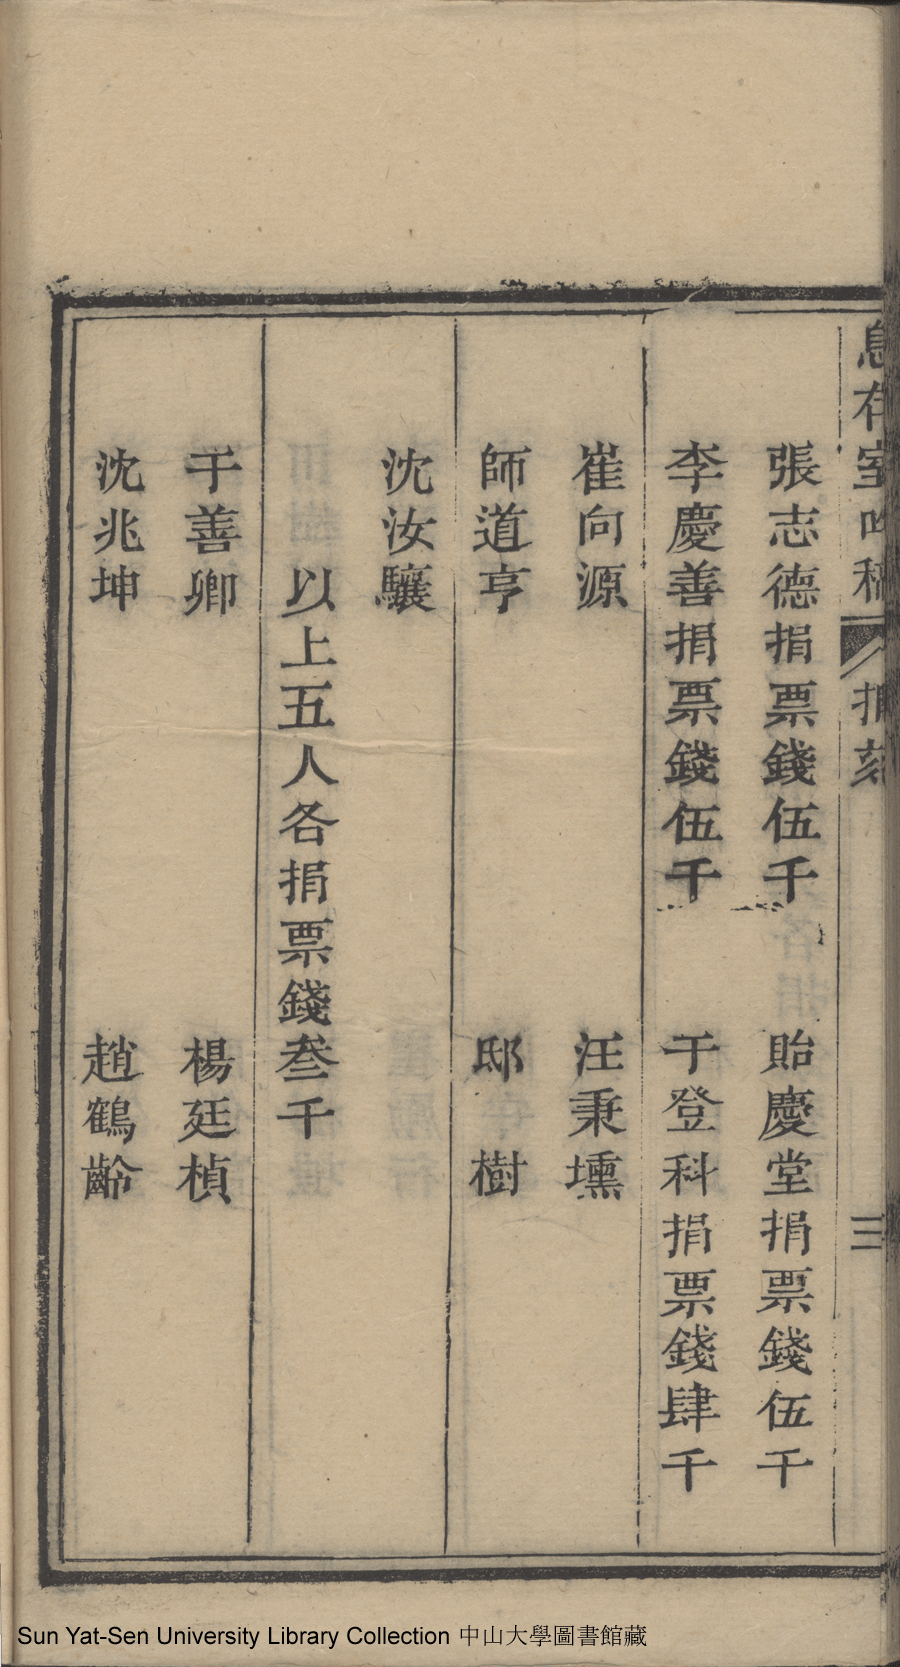 息存室吟稿 捐刻 三
張志德捐票錢伍千 貽慶堂捐票錢伍千
李慶善捐票錢伍千 于登科捐票錢肆千
崔向源 汪秉壎
師道亨 邸樹
沈汝驤
以上五人各捐票錢叁千
于善卿 楊廷楨
沈兆坤 趙鶴齡
Sun Yat-Sen University Library Collection 中山大學圖書館藏